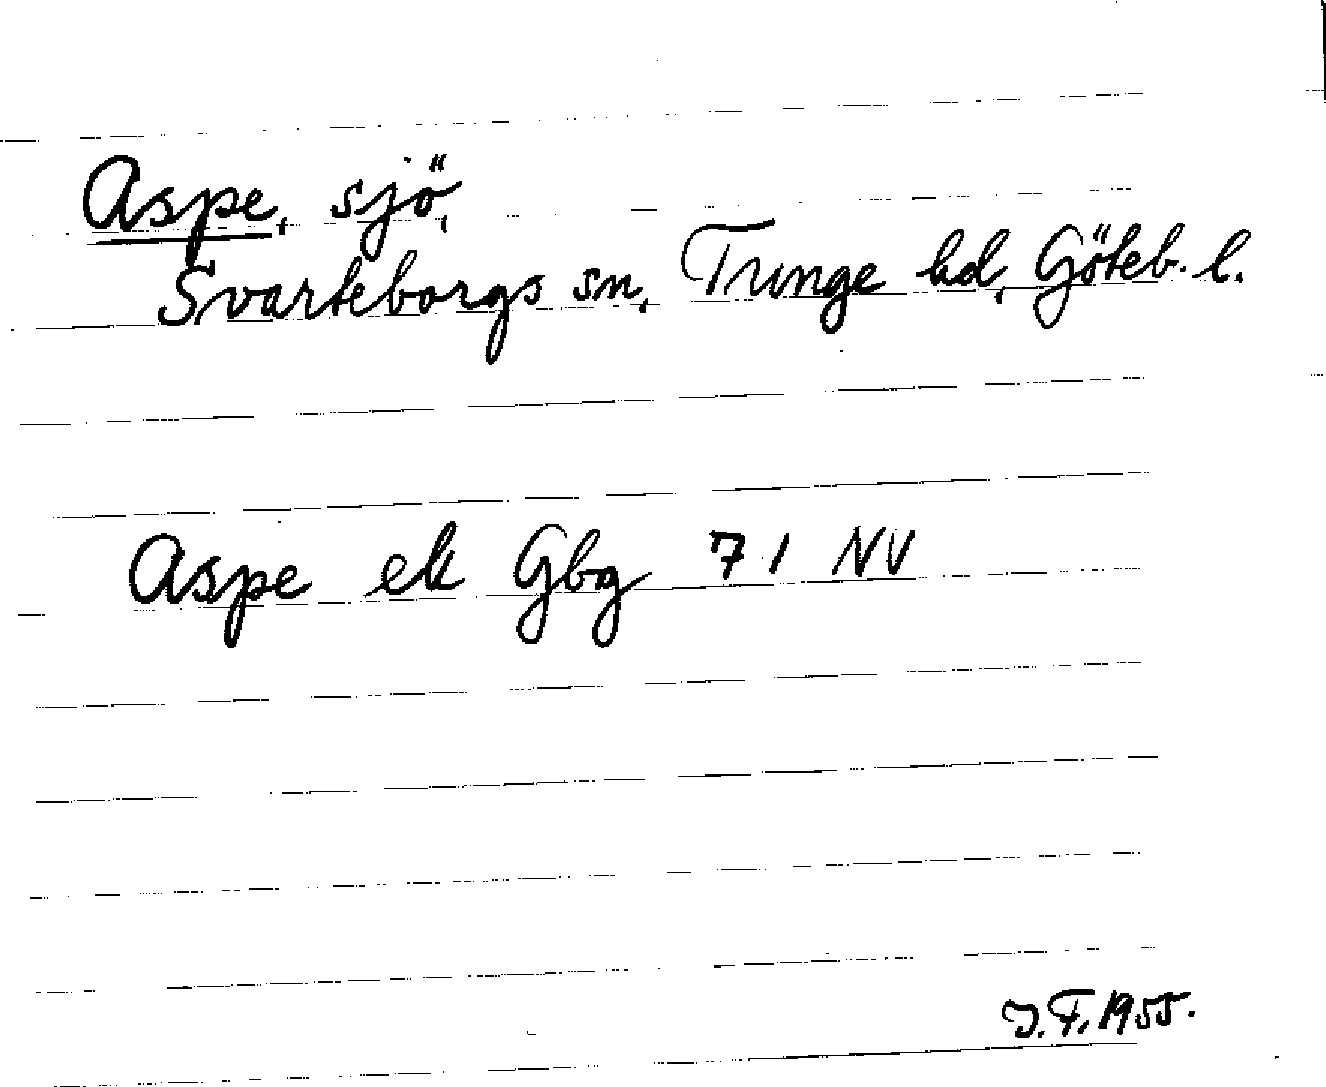 Aspe, sjö,
Svarteborgs sn, Tunge hd, Göteb. l.
Aspe ek Gbg 71 NV
J.F. 1955.